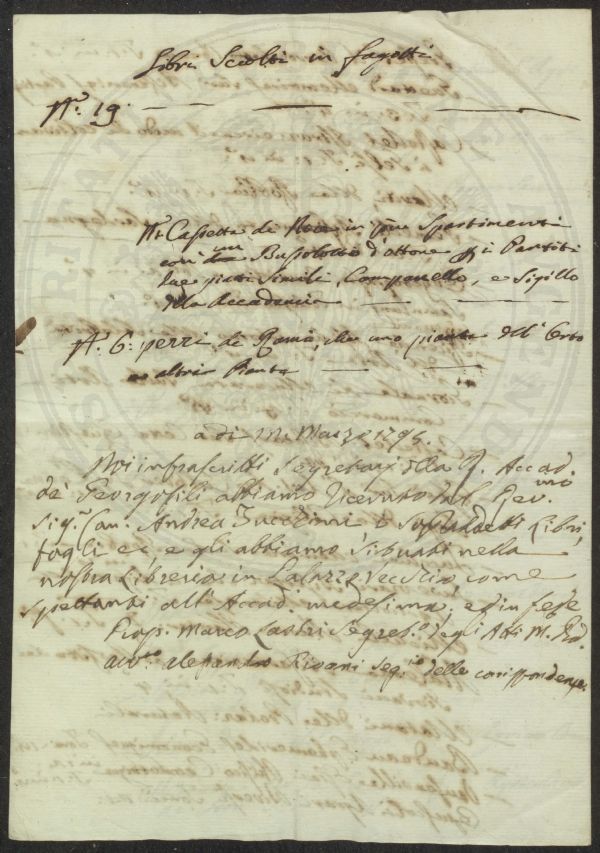 Libri Sciolti in fagotti
N.° 19.
N.1 Cassetta di Noce in Spartimenti
con un Bussolotto d'ottone p i Partiti
due piatti Simili, Campanello, e Sigillo
della Accademia
N.° 6: pezzi di Rami, che uno pianta dell' Orto
altri Piante
a di Marzo 1795.
Noi infrascritti Segretarj della R. Accad.
de' Georgofili abbiamo ricevuto dal Rev.mo
Sig.r Can. Andrea Zucchini i Suddetti Libri,
fogli ec, e gli abbiamo situati nella
nostra Libreria in Palazzo Vecchio, come
spettanti all' Accad. medesima; ed in fede
Prop. Marco Lastri Segret.° degli Atti M. P.a
Alessandro Rivani Seg.rio delle corrispondenze.